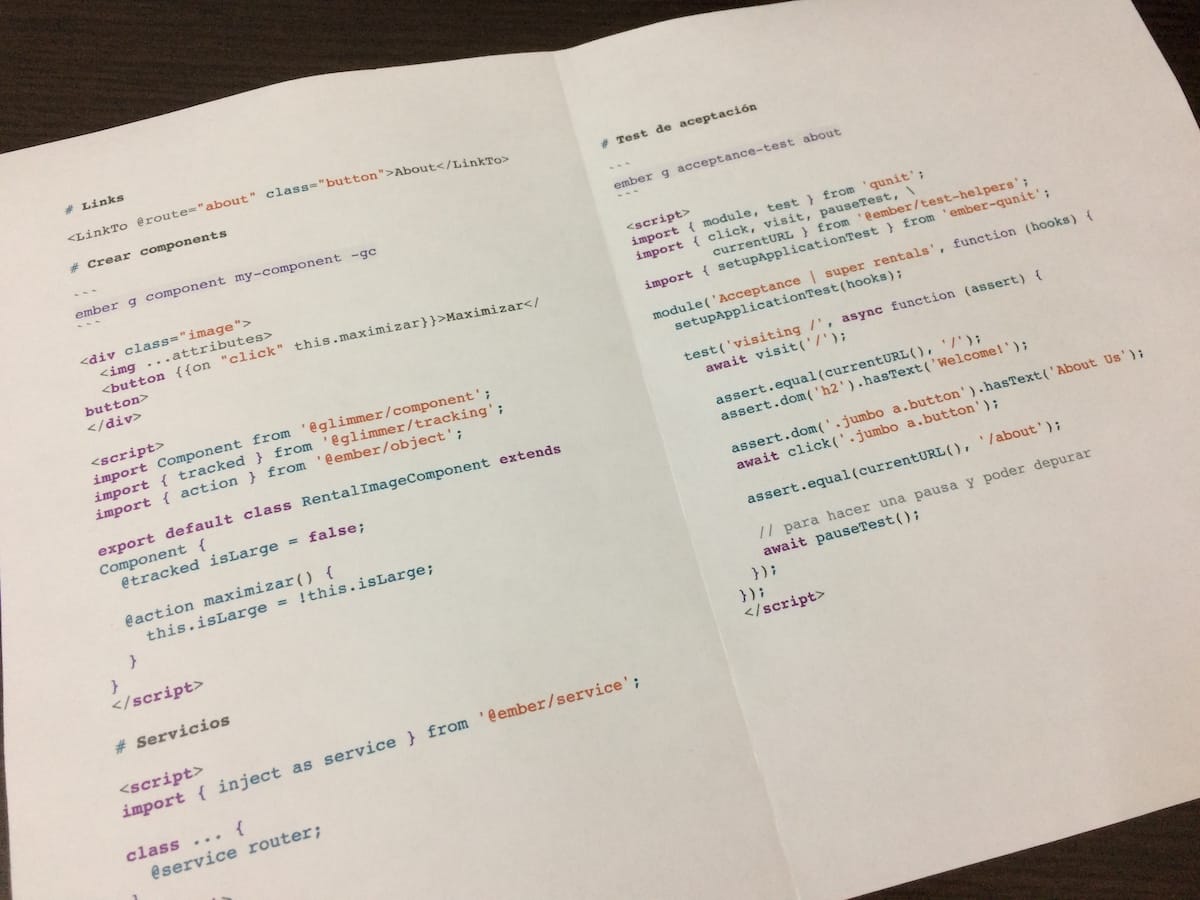 # Links
<LinkTo @route="about" class="button">About</LinkTo>
# Crear components
```
ember g component my-component -gc
```
<div class="image">
<img ...attributes>
<button {{on "click" this.maximizar}}>Maximizar</
button>
</div>
<script>
import Component from '@glimmer/component';
import { tracked } from '@glimmer/tracking';
import { action } from '@ember/object';
export default class RentalImageComponent extends
Component {
@tracked isLarge = false;
@action maximizar() {
this.isLarge = !this.isLarge;
}
}
</script>
# Servicios
<script>
import { inject as service } from '@ember/service';
class ... {
@service router;
}
# Test de aceptación
```
ember g acceptance-test about
```
<script>
import { module, test } from 'qunit';
import { click, visit, pauseTest, \
currentURL } from '@ember/test-helpers';
import { setupApplicationTest } from 'ember-qunit';
module('Acceptance | super rentals', function (hooks) {
setupApplicationTest(hooks);
test('visiting /', async function (assert) {
await visit('/');
assert.equal(currentURL(), '/');
assert.dom('h2').hasText('Welcome!');
assert.dom('.jumbo a.button').hasText('About Us');
await click('.jumbo a.button');
assert.equal(currentURL(), '/about');
// para hacer una pausa y poder depurar
await pauseTest();
});
});
</script>